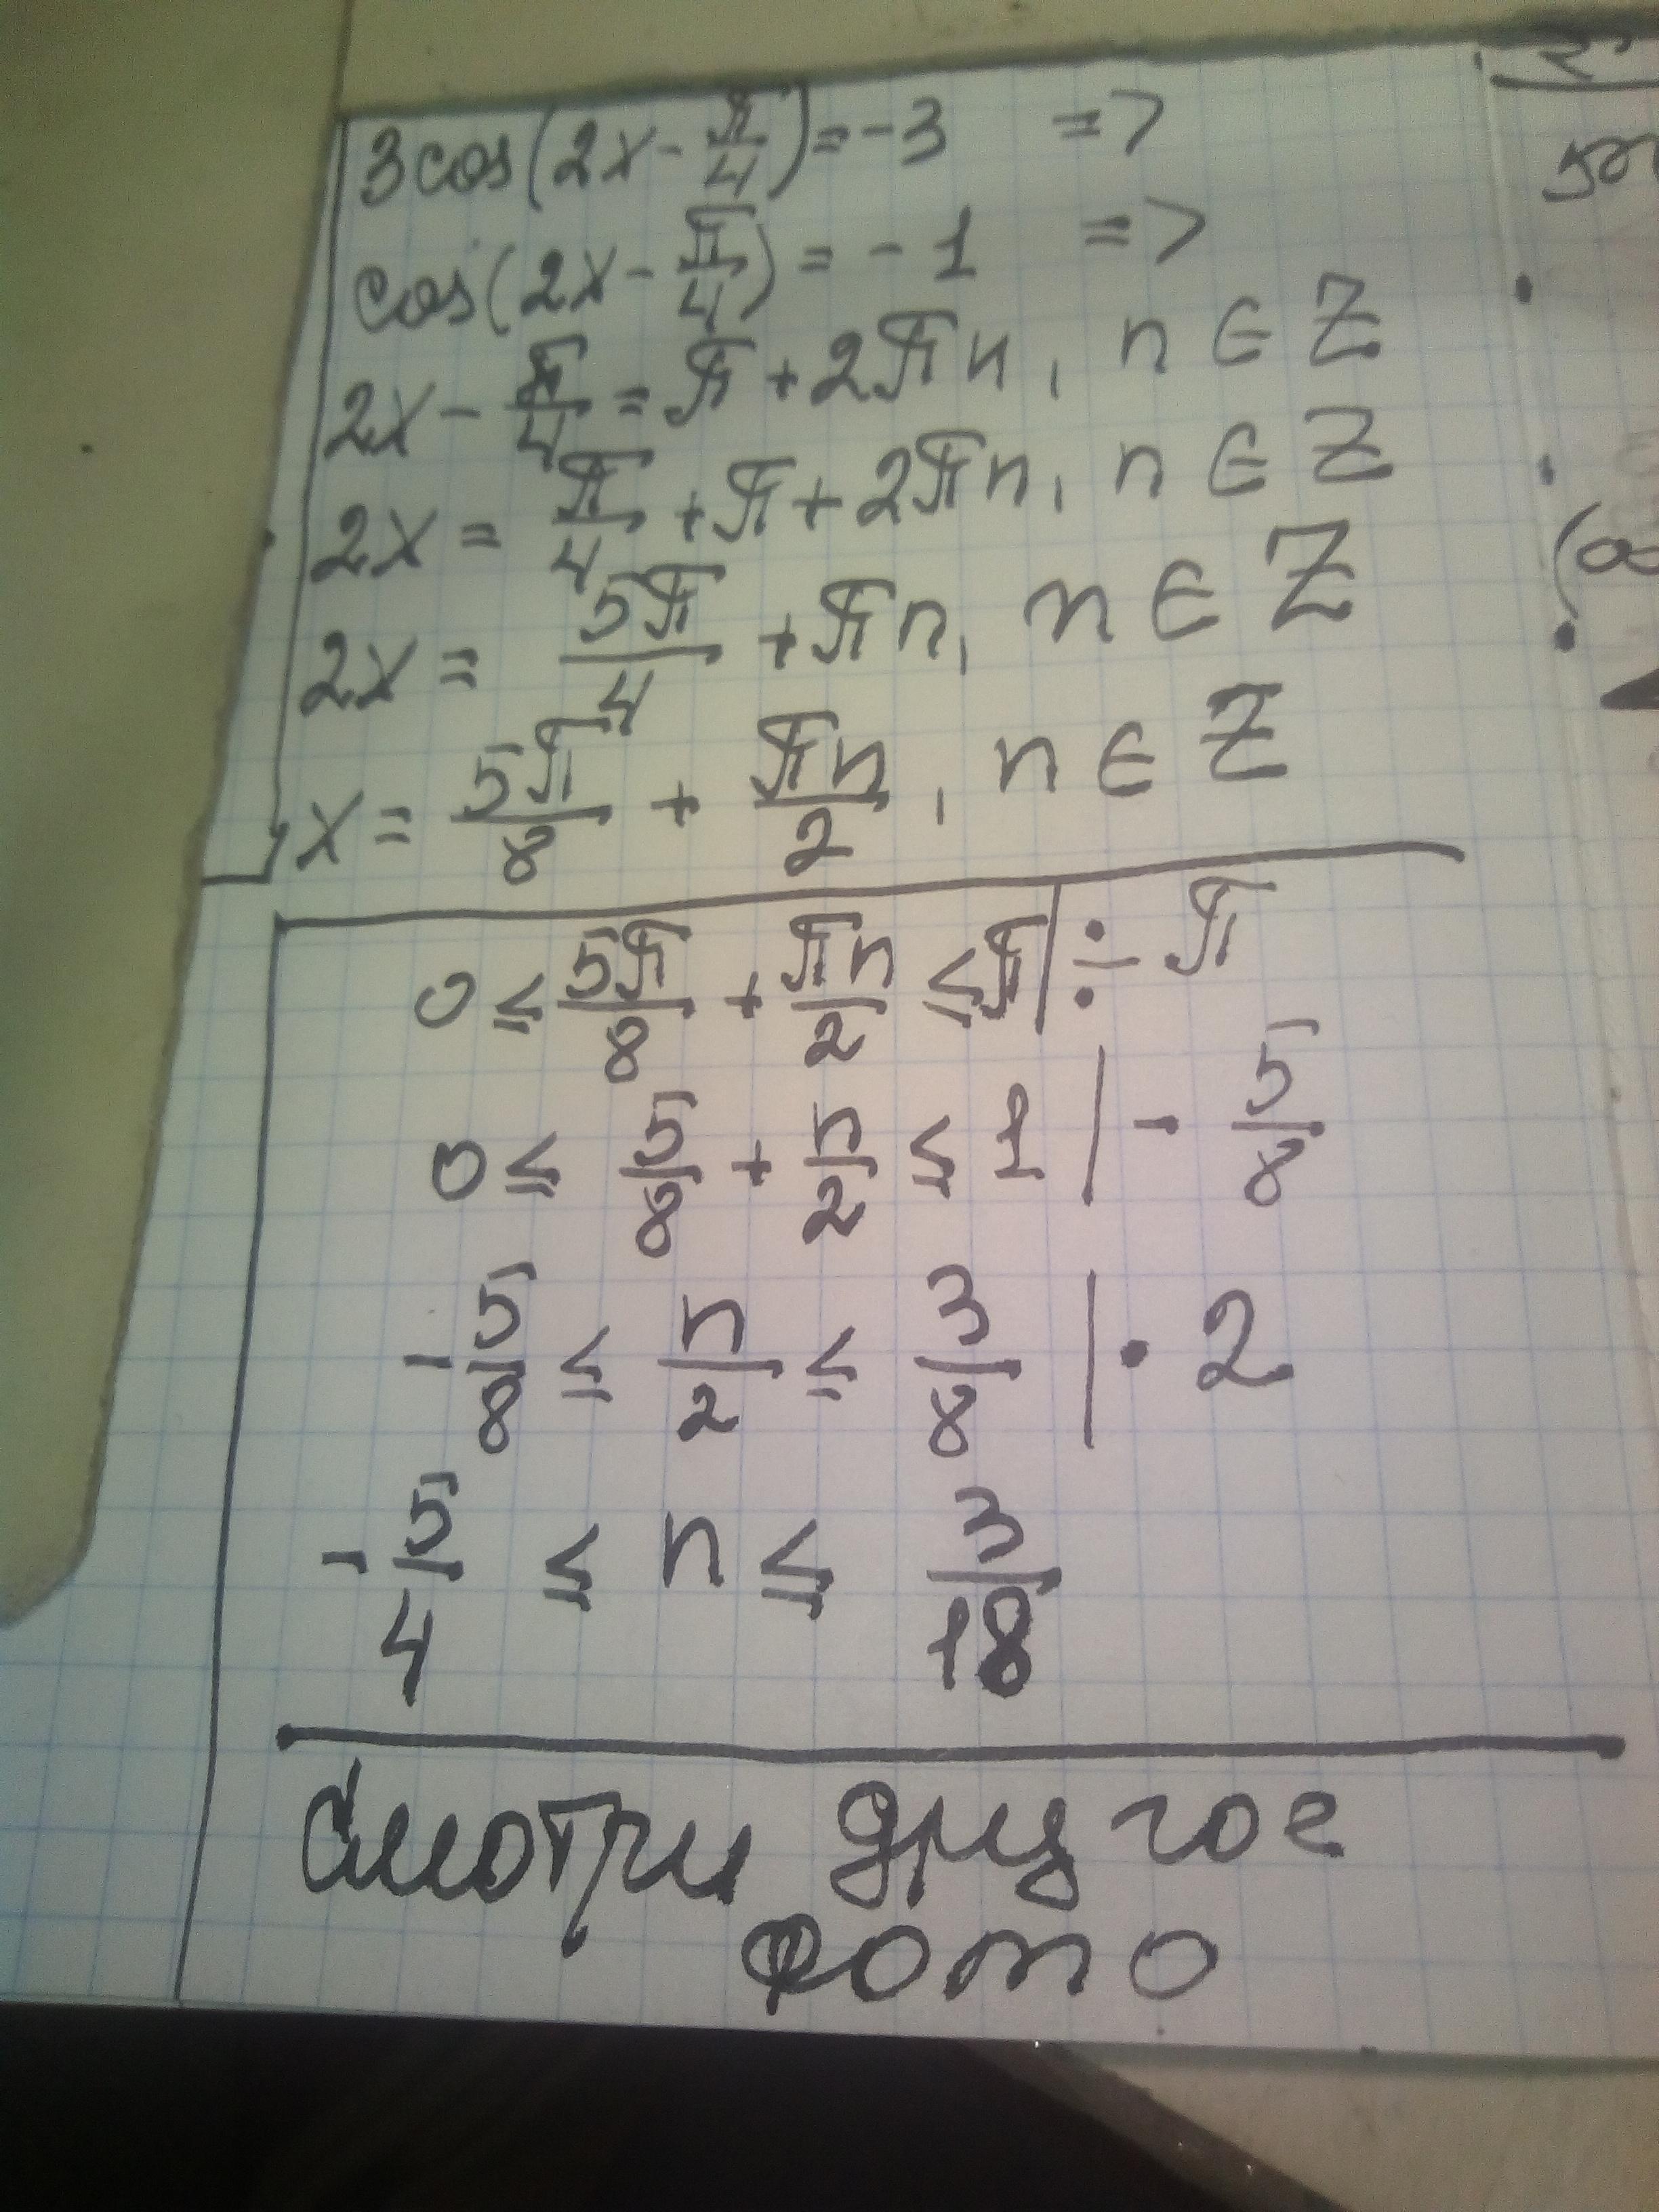 3cos(2x - π/4) = -3 =>
cos(2x - π/4) = -1 =>
2x - π/4 = π + 2πn, n ∈ Z
2x = π/4 + π + 2πn, n ∈ Z
2x = 5π/4 + πn, n ∈ Z
x = 5π/8 + πn/2, n ∈ Z
0 ≤ 5π/8 + πn/2 ≤ π | ÷ π
0 ≤ 5/8 + n/2 ≤ 1 | - 5/8
-5/8 ≤ n/2 ≤ 3/8 | · 2
-5/4 ≤ n ≤ 3/18
Смотри другое
фото